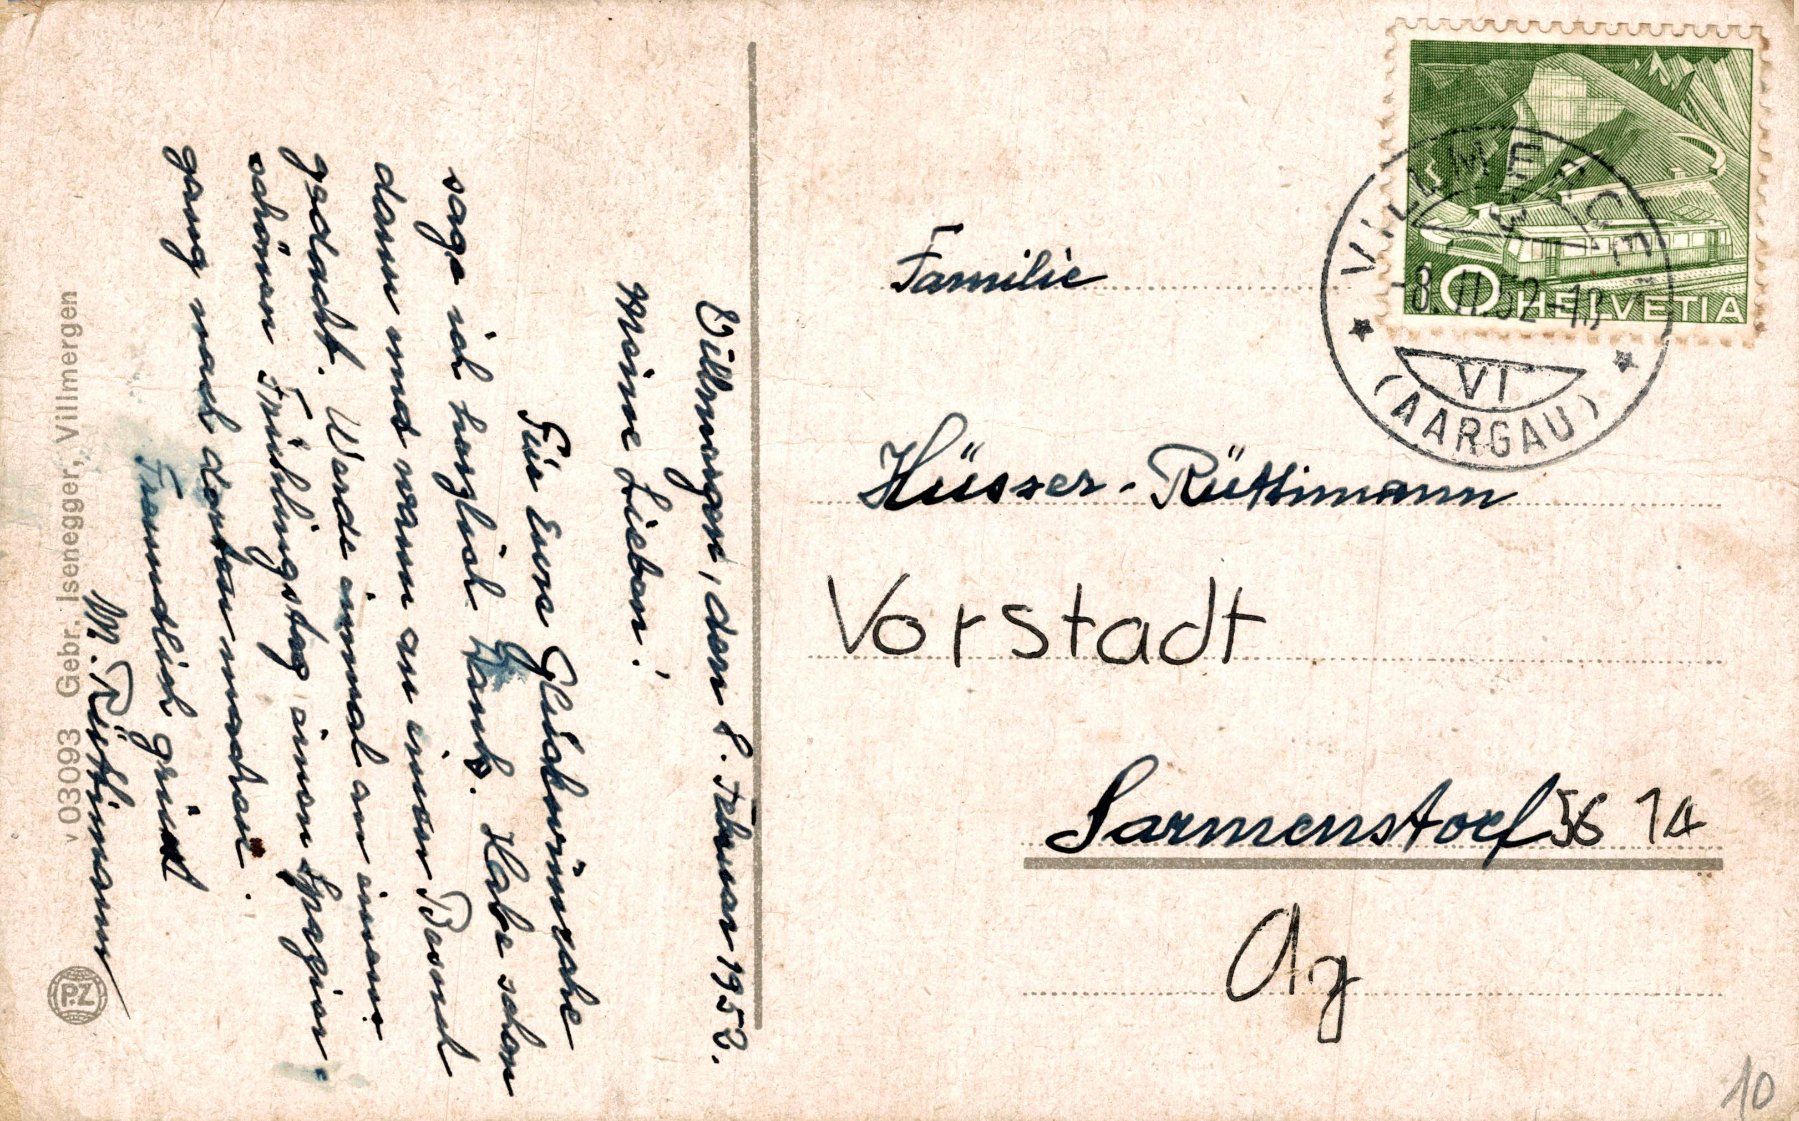 Villmergen, den 8. Februar 1952.
Meine Lieben!
Für Eure Glückwünsche
sage ich herzlich Dank. Habe schon
dann und wann an einen Besuch
gedacht. Werde einmal an einem
schönen Frühlingstag einen Spazier-
gang nach dorten machen.
Freundlich grüsst
M. Rüttimann
V 03093 Gebr. Isenegger, Villmergen
P.Z
10 HELVETIA
VILLMERGEN
8. II. 52 - 18
VI
(AARGAU)
Familie
Hüsser - Rüttimann
Vorstadt
Sarmenstorf 5614
Ag
10